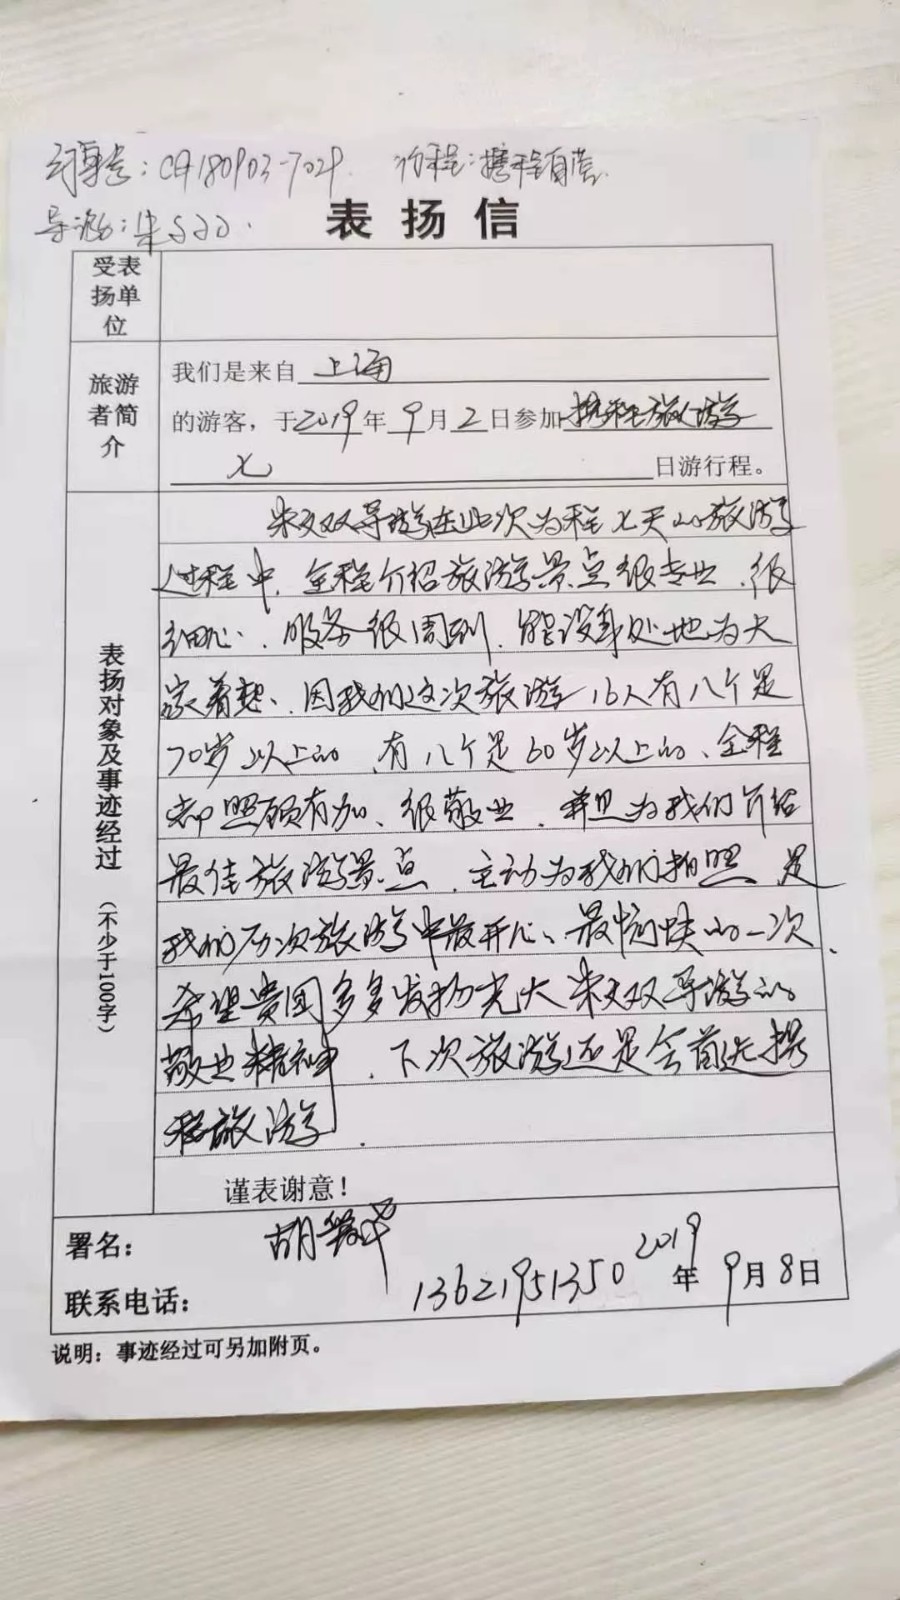 订单号：CA180903-7029 行程：携程自营
导游：朱文双
表扬信
受表扬单位
旅游者简介
我们是来自上海
的游客，于2019年9月2日参加携程旅行游
七日游行程。
表扬对象及事迹经过（不少于100字）
朱文双导游在此次为程七天的旅游
过程中，全程介绍旅游景点很专业、很
细心、服务很周到，能设身处地为大
家着想、因我们这次旅游16人有八个是
70岁以上的、有八个是60岁以上的、全程
都照顾有加、很敬业，并且为我们介绍
最佳旅游景点，主动为我们拍照 是
我们历次旅游中最开心、最愉快的一次，
希望贵团多多发扬光大朱文双导游的
敬业精神，下次旅游还是会首选携
程旅游．
谨表谢意！
署名：胡
联系电话：13621951350 2019年9月8日
说明：事迹经过可另加附页。